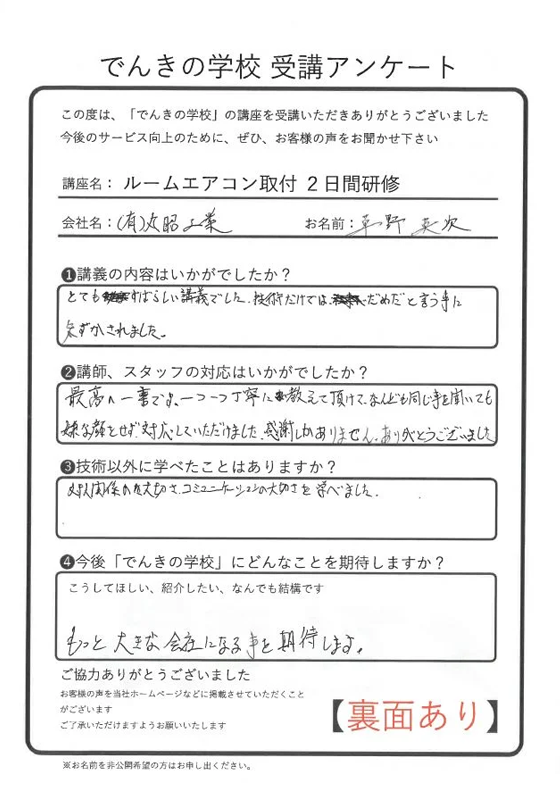 でんきの学校 受講アンケート
この度は、「でんきの学校」の講座を受講いただきありがとうございました
今後のサービス向上のために、ぜひ、お客様の声をお聞かせ下さい
講座名：ルームエアコン取付 ２日間研修
会社名：(有)丸昭工業 お名前：草野 英次
❶講義の内容はいかがでしたか？
とてもすばらしい講義でした。技術だけでは、だめだと言う事に
気ずかされました。
❷講師、スタッフの対応はいかがでしたか？
最高の一言です。一つ一つ丁寧に教えて頂けて、なんども同じ事を聞いても
嫌な顔とせず、対応していただけました。感謝しかありません。ありがとうございました
❸技術以外に学べたことはありますか？
対人関係の大切さ、コミュニケーションの大切さを学べました。
❹今後「でんきの学校」にどんなことを期待しますか？
こうしてほしい、紹介したい、なんでも結構です
もっと大きな会社になる事を期待します。
ご協力ありがとうございました
お客様の声を当社ホームページなどに掲載させていただくこと
がございます
ご了承いただけますようお願いいたします
【裏面あり】
※お名前を非公開希望の方はお申し出ください。